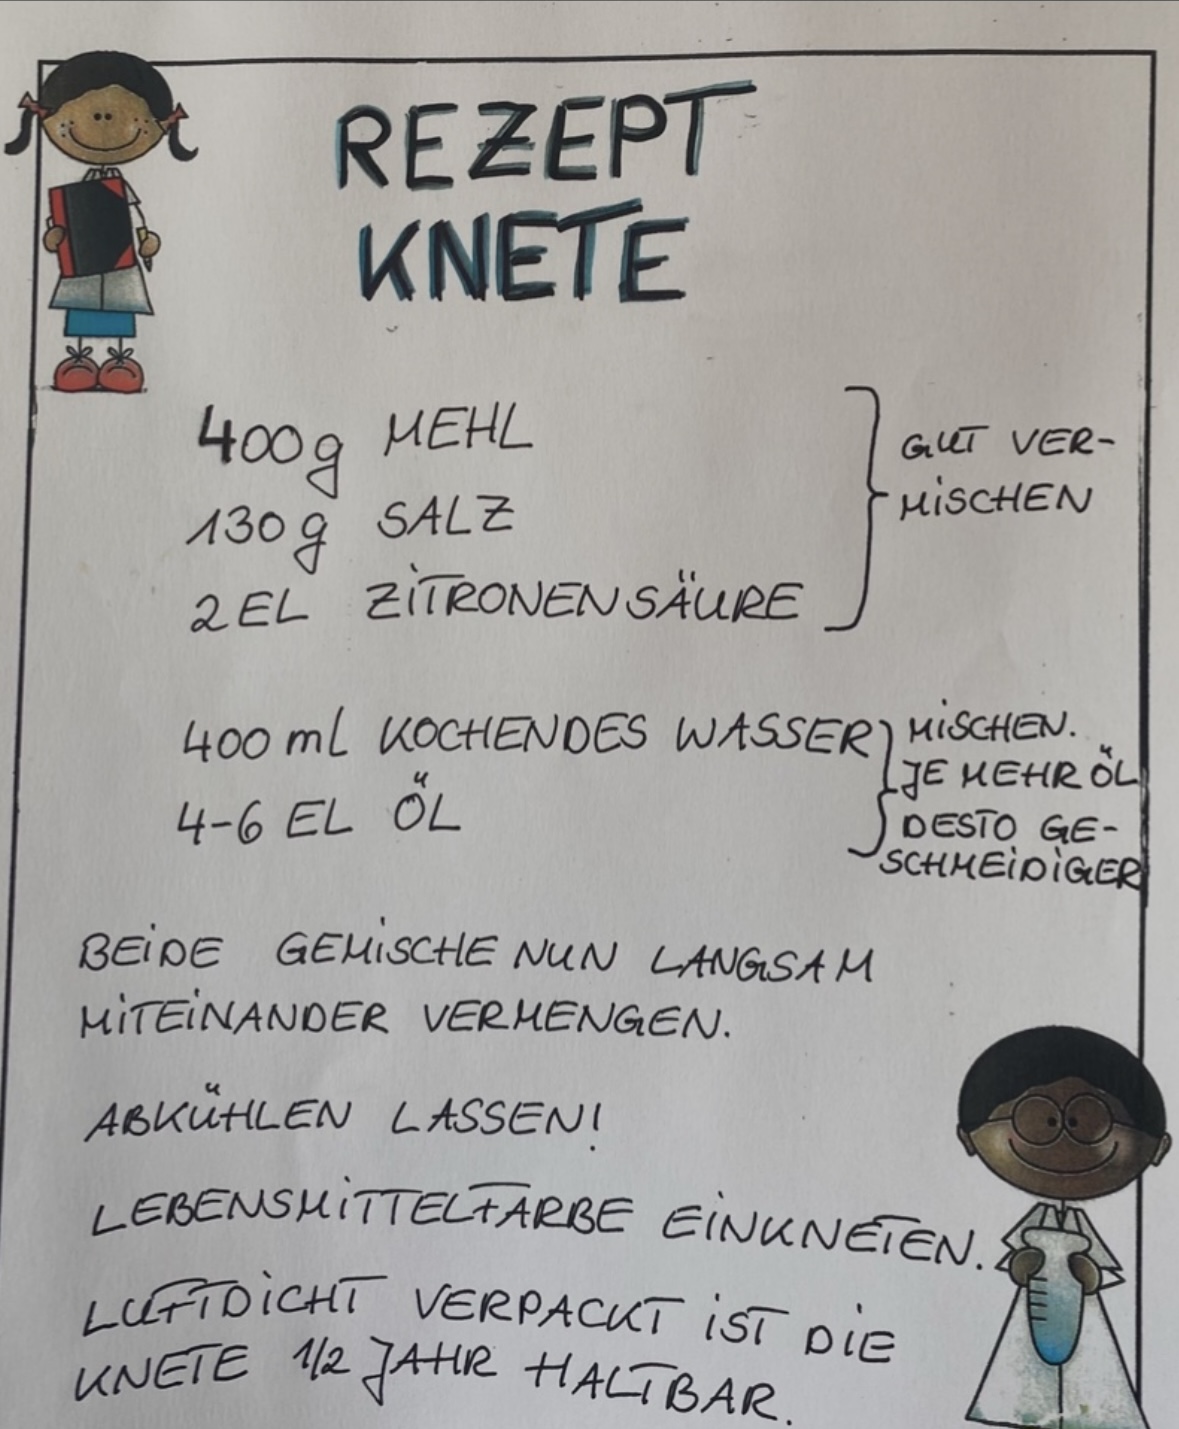 REZEPT
KNETE
400g MEHL
130g SALZ
2 EL ZITRONENSÄURE
GUT VER-
MISCHEN
400 ml KOCHENDES WASSER
4-6 EL ÖL
MISCHEN.
JE MEHR ÖL
DESTO GE-
SCHMEIDIGER
BEIDE GEMISCHE NUN LANGSAM
MITEINANDER VERMENGEN.
ABKÜHLEN LASSEN!
LEBENSMITTELFARBE EINKNETEN.
LUFTDICHT VERPACKT IST DIE
KNETE 1/2 JAHR HALTBAR.